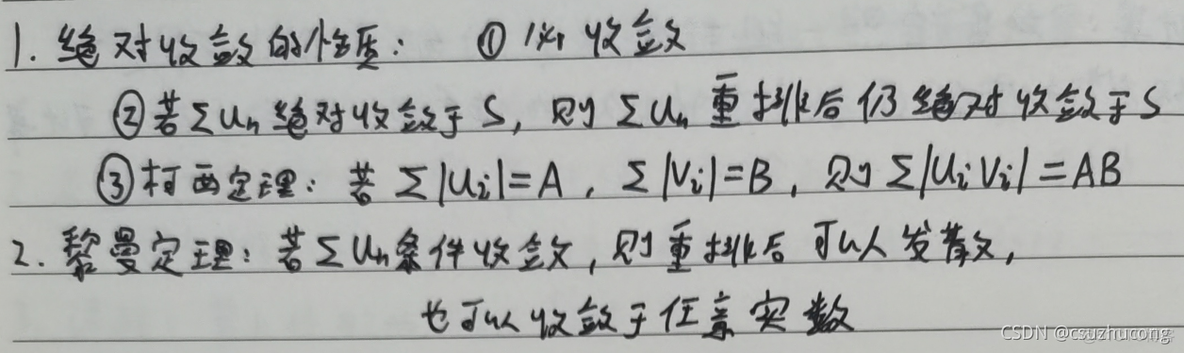 1. 绝对收敛的性质： ① 必收敛
②若∑Uₙ绝对收敛于S，则∑Uₙ重排后仍绝对收敛于S
③柯西定理：若∑|Uᵢ|=A，∑|Vᵢ|=B，则∑|UᵢVᵢ|=AB
2. 黎曼定理：若∑Uₙ条件收敛，则重排后可以发散，
也可以收敛于任意实数
CSDN @csuzhucong